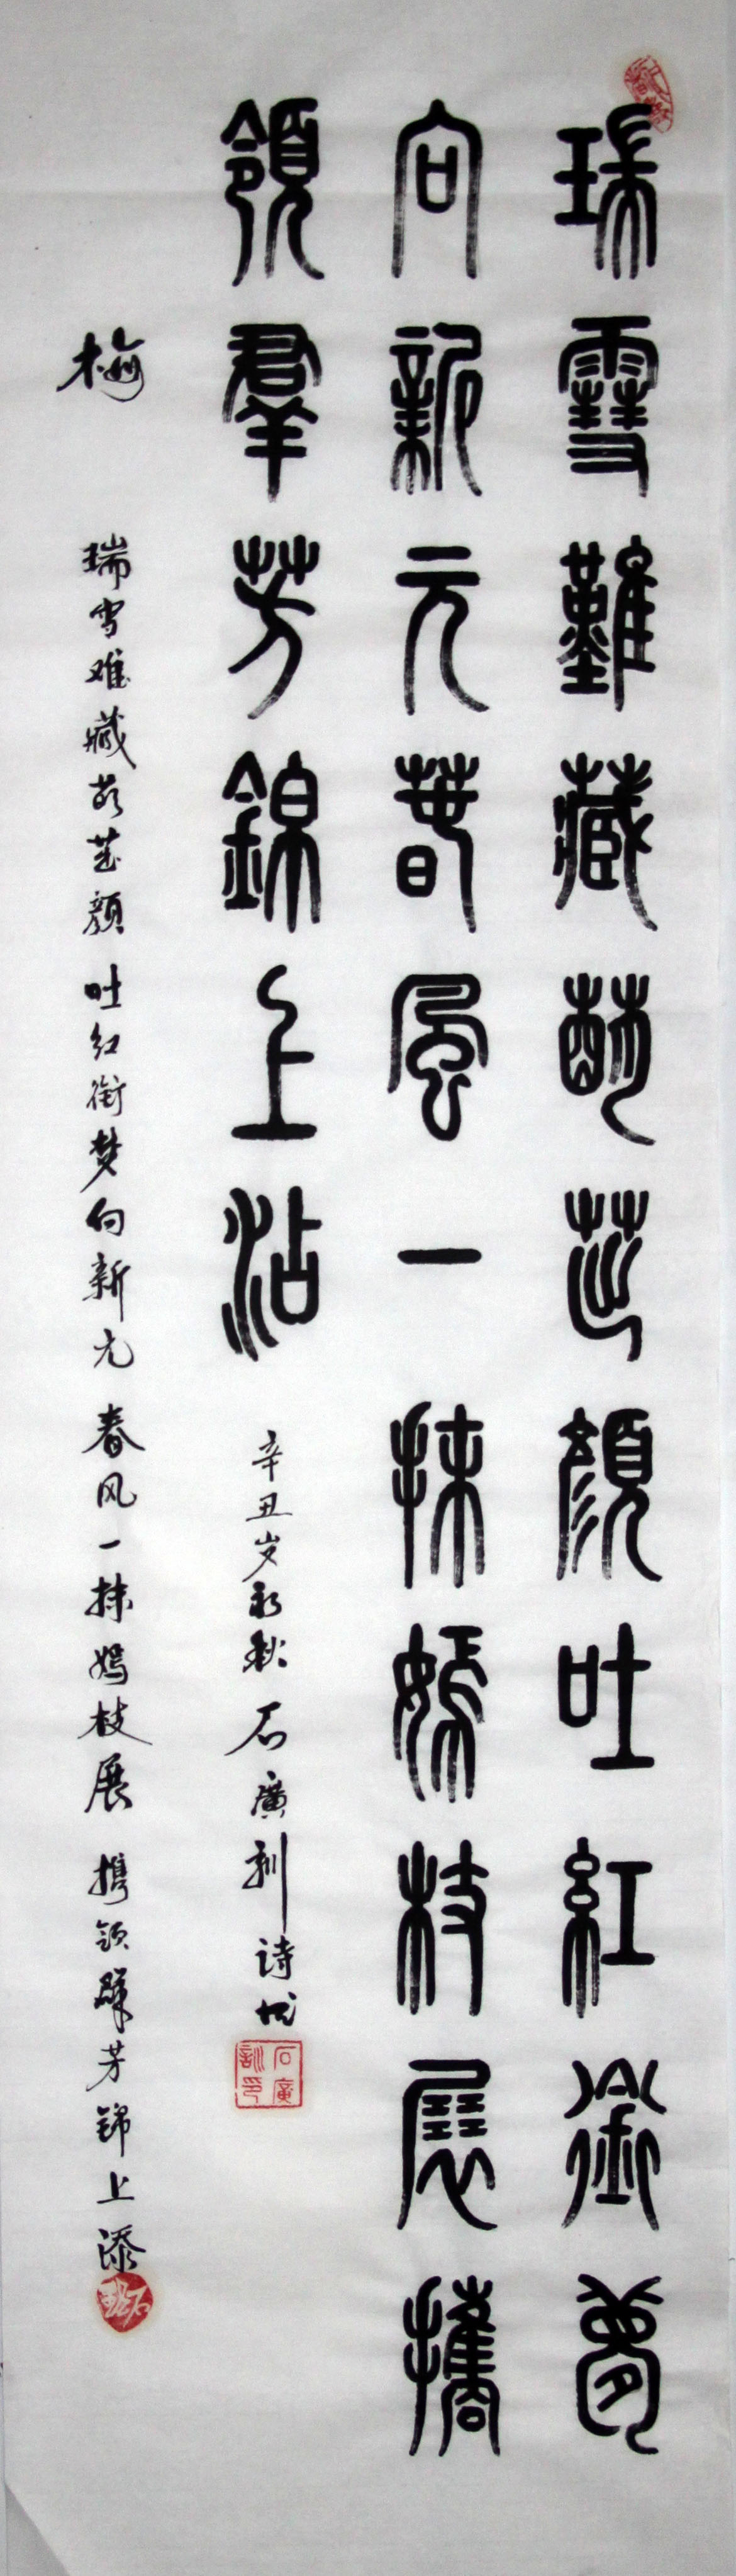 瑞雪難藏萌芯顔吐紅銜夢
向新元春風一抹嫣枝展攜
領羣芳錦上沾
辛丑岁初秋石廣訓诗書
石廣訓印
梅
瑞雪难藏萌芯颜吐红衔梦向新元春风一抹嫣枝展携领群芳锦上添